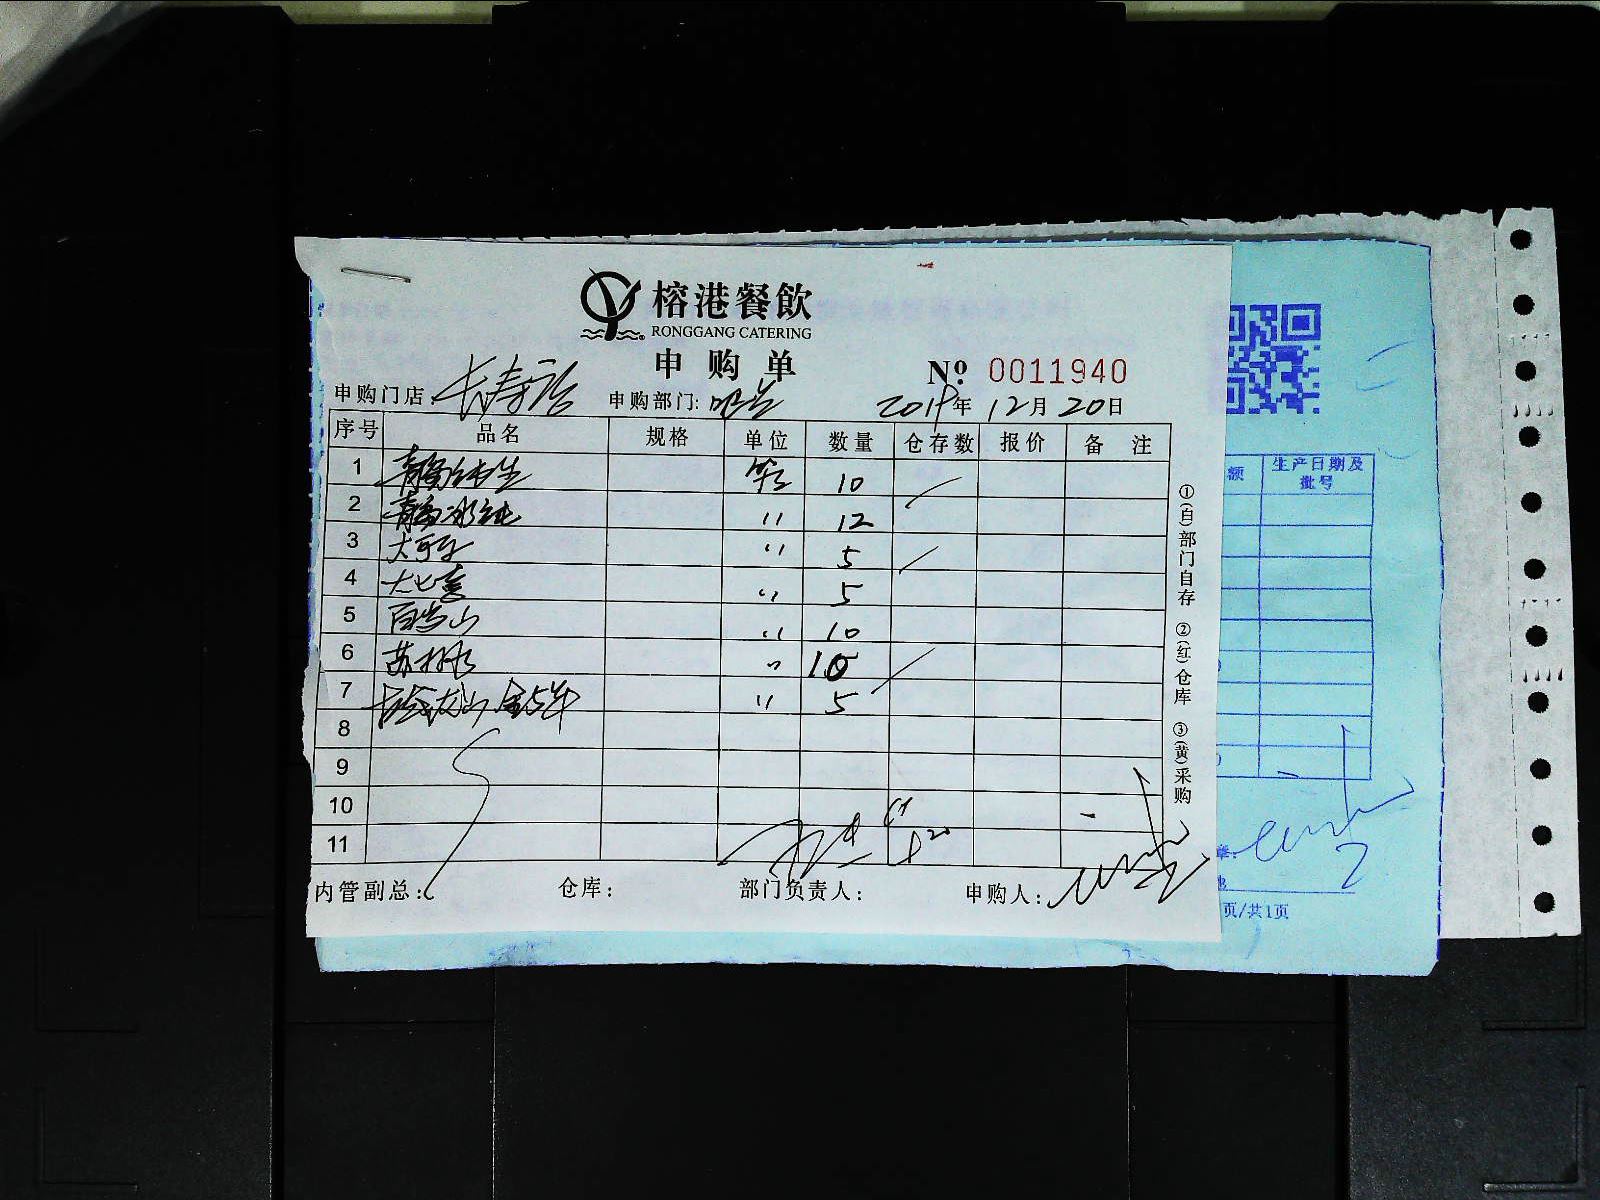 榕港餐飲
RONGGANG CATERING
申购单
No. 0011940
申购门店: 长寿路 申购部门: 吧台 2019年 12月 20日
序号 品名 规格 单位 数量 仓存数 报价 备 注
1 青岛纯生 箱 10
2 青岛冰纯 〃 12
3 大可乐 〃 5
4 大七喜 〃 5
5 百岁山 〃 10
6 苏打水 〃 10
7 〃 5
8
9
10
11
内管副总: 仓库: 部门负责人: 申购人:
①(白)部门自存 ②(红)仓库 ③(黄)采购
额 生产日期及
批号
章:
页/共1页